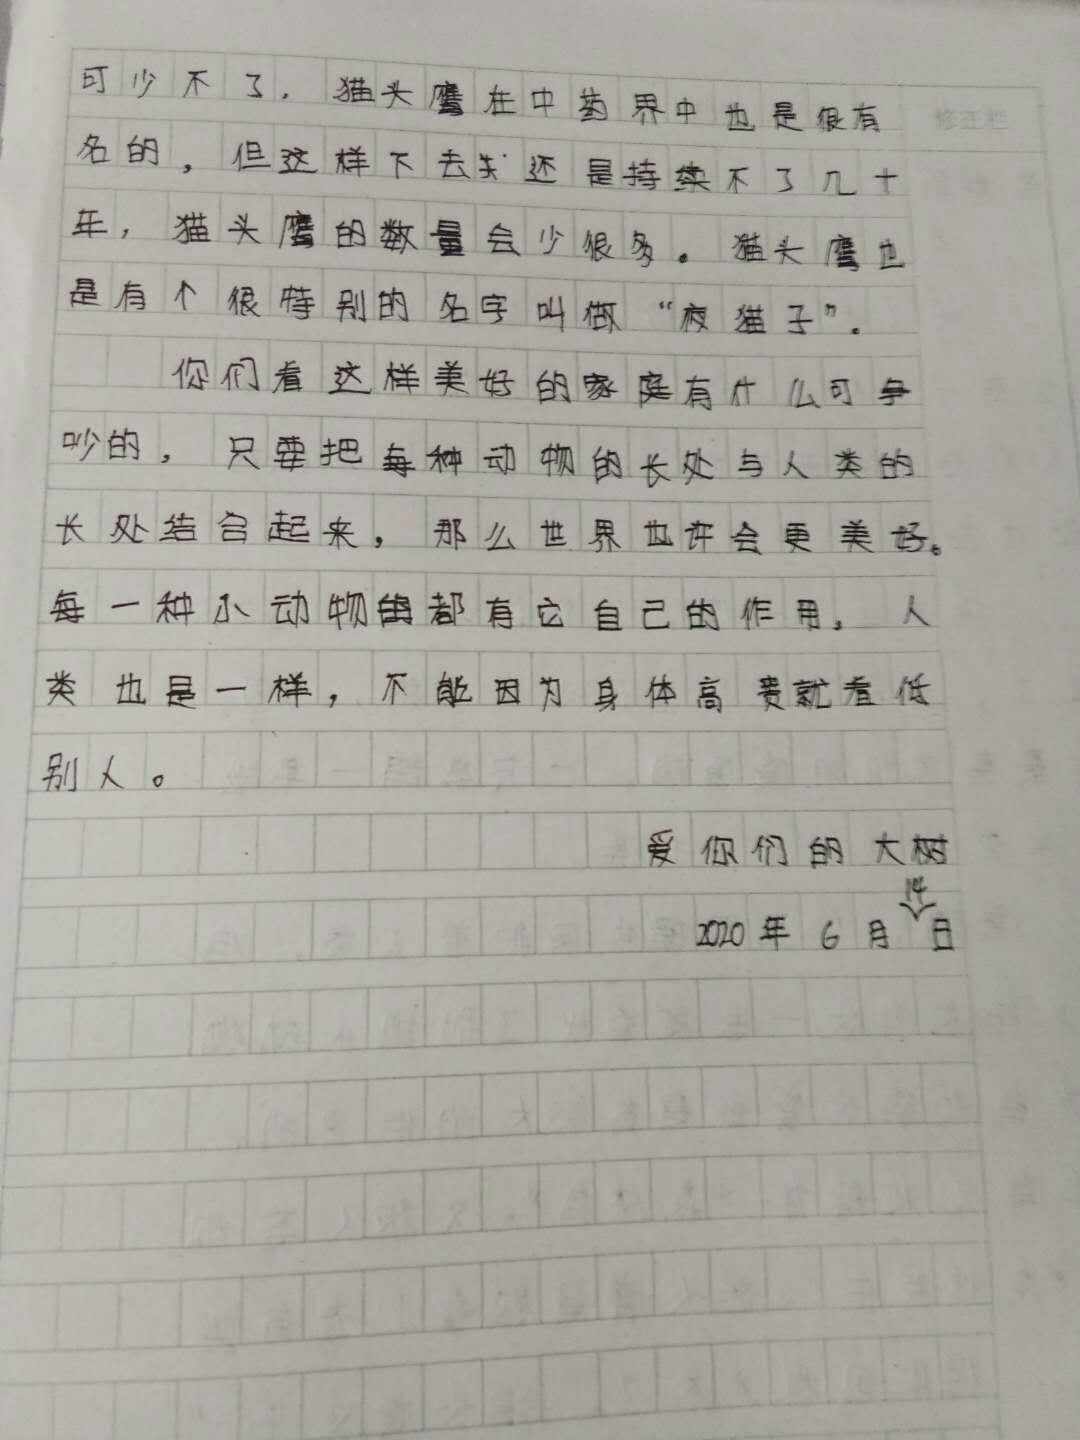 可少不了．猫头鹰在中药界中也是很有
修正栏
名的，但这样下去还是持续不了几十
年，猫头鹰的数量会少很多。猫头鹰也
是有个很特别的名字叫做“夜猫子”．
你们看这样美好的家庭有什么可争
吵的，只要把每种动物的长处与人类的
长处结合起来，那么世界也许会更美好。
每一种小动物都有它自己的作用．人
类也是一样，不能因为身体高贵就看低
别人。
爱你们的大树
2020年6月14日